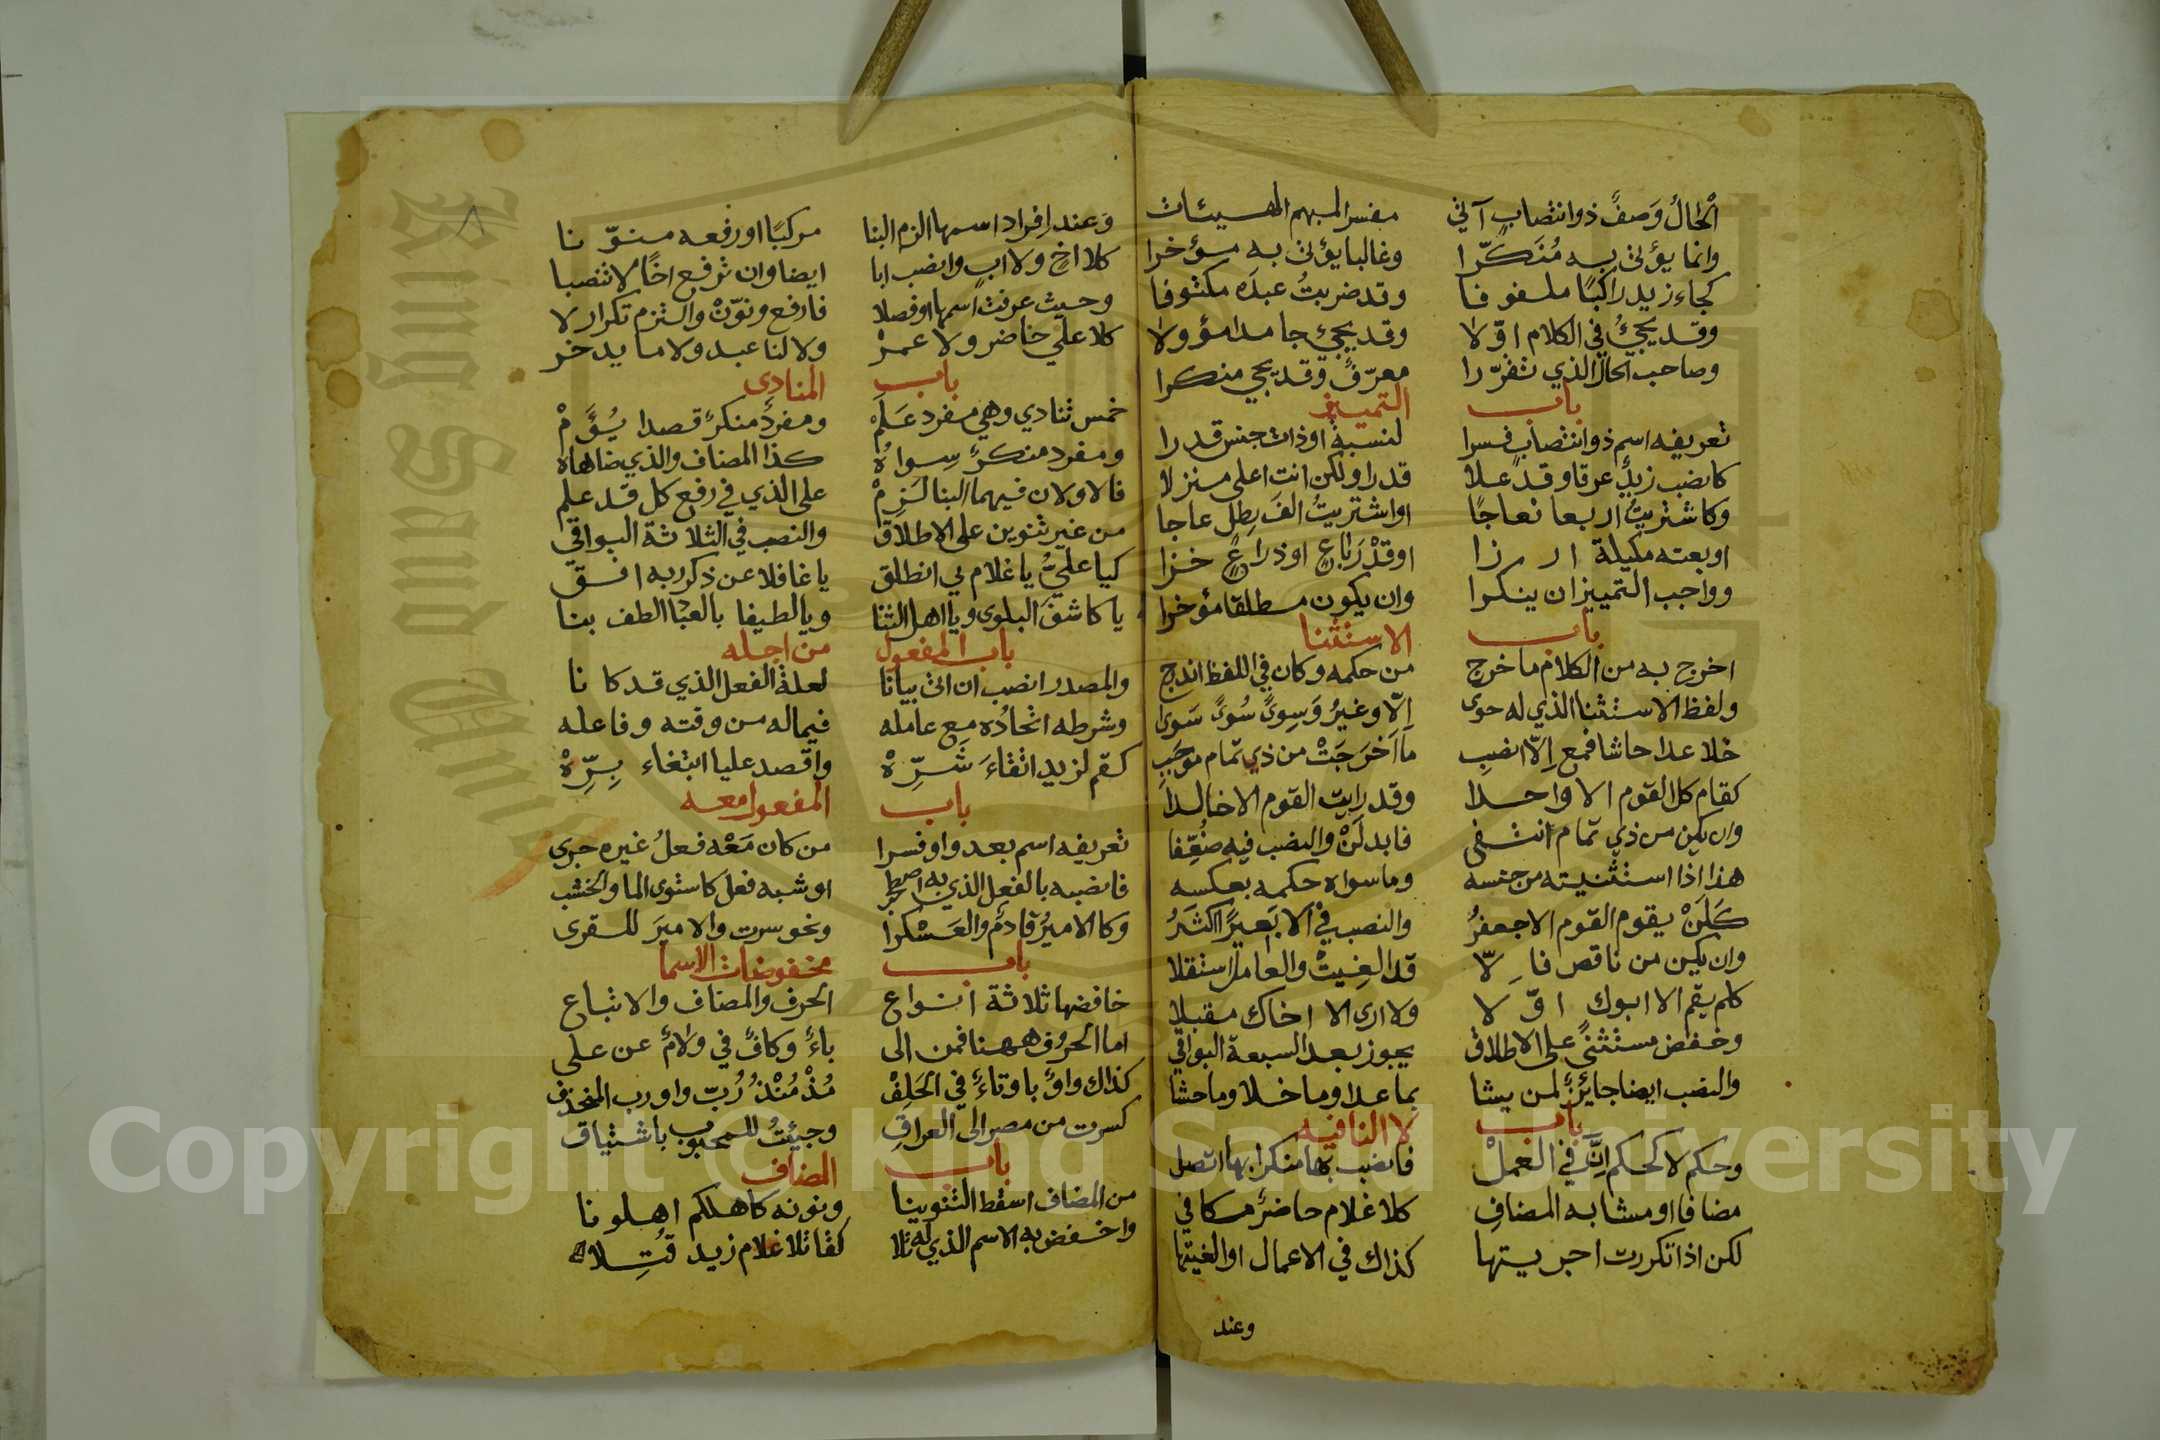 الْحَالُ وَصفٌ ذو انتصاب آتي مفسر المبهم الهيئات
وانما يؤتى به مُنَكَّرا وغالبا يؤتى به مؤخرا
كجاء زيد راكبًا ملفوفا وقد ضربتُ عبدَه مكتوفا
وقد يجيءُ في الكلام اوّلا وقد يجيء جامدا مؤولا
وصاحب الحال الذي تقرّرا معرّفٌ وقد يجي منكرا
باب التمييز
تعريفه اسم ذو انتصاب فسرا لنسبة او ذات جنس قدرا
كانصب زيدٌ عرقا وقد علا قدرا ولكن انت اعلى منزلا
وكاشتريتُ اربعا نعاجًا او اشتريتُ الفَ رطل عاجا
او بعته مكيلة ارزا او قدْرَ باعٍ او ذراعٍ خزا
وواجب التمييز ان ينكرا وان يكون مطلقا مؤخرا
باب الاستثنا
اخرج به من الكلام ما خرج من حكمه وكان في اللفظ اندرج
ولفظ الاستثنا الذي له حوى اِلّا وغيرُ وَسِوىً سُوىً سَوىا
خلا عدا حاشا فمع اِلّا انصبِ ما اَخرَجَتْ من ذي تمام موجَبِ
كقام كل القوم الا واحدا وقد رايت القوم الا خالدا
وان يكن من ذي تمام انتفى فابدلَنْ والنصب فيه ضُعِّفا
هذا اذا استثنيته من جنسه وما سواه حكمه بعكسه
كَلَنْ يقوم القوم الا جعفرُ والنصب في الا بَعيرًا اكثَرُ
وان يكن من ناقص فاِلّا قد الغيتْ والعامل استقلا
كلم يقم الا ابوك اوّلا ولا ارى الا اخاك مقبلا
وخفض مستثنىً على الاطلاق يجوز بعد السبعة البواقي
والنصب ايضا جائزٌ لمن يشا بما عدا وما خلا وما حشا
باب لا النافيه
وحكم لا كحكم اِنَّ في العملْ فانصب بها منكرا بها اتصل
مضافا او مشابه المضافِ كلا غلام حاضرٌ مكافي
لكن اذا تكررت اجريتها كذاك في الاعمال او الغيتها
وعند
٨
وَعند افراد اسمها الزم البنا مركبًا او رفعه منوّنا
كلا اخٍ ولا اب وانصب ابا ايضا وان ترفع اخًا لا تنصبا
وحيث عرفتَ اسمها او فصلا فارفع ونوّنْ والتزم تكرار لا
كلا علي حاضر ولا عمرْ ولا لنا عبد ولا ما يدخر
باب المنادى
خمس تنادي وهي مفرد عَلَمْ ومفردٌ منكرٌ قصدا يُؤَمْ
ومفرد منكرٌ سِواهُ كذا المضاف والذي ضاهاه
فالاولان فيهما البنا لَزِمْ على الذي في رفع كل قد علم
من غير تنوين على الاطلاق والنصب في الثلاثة البواقي
كيا عليُّ يا غلام بي انطلق يا غافلا عن ذكر ربه افق
يا كاشفَ البلوى ويا اهل الثنا ويا لطيفا بالعباد الطف بنا
باب المفعول من اجله
والمصدر انصب ان اتى بيانا لعلة الفعل الذي قد كانا
وشرطه اتحادُه مع عامله فيما له من وقته وفاعله
كقم لزيد اتقاءَ شَرِّهْ واقصد عليا ابتغاء بِرِّهْ
باب المفعول معه
تعريفه اسم بعد واو فسرا من كان مَعْه فعلُ غيره جرى
فانصبه بالفعل الذي به اصطحب او شبه فعل كاستوى الما والخشب
وكالاميرُ قادمٌ والعَسْكرا ونحو سرت والاميرَ للقرى
باب مخفوضات الاسما
خافضها ثلاثة انواع الحرف والمضاف والاتباع
اما الحروف ههنا فمن الى باءٌ وكافٌ في ولامٌ عن على
كذاك واوٌ با وتاءٌ في الحَلِفْ مُذْ مُنْذُ رُبّ واو رب المنحذف
كسرت من مصر الى العراقِ وجيئتُ للمحبوب باشتياق
باب المضاف
من المضاف اسقط التنوينا ونونه كاهلكم اهلونا
واخفض به الاسم الذي له تلا كقاتلا غلام زيد قُتِلا